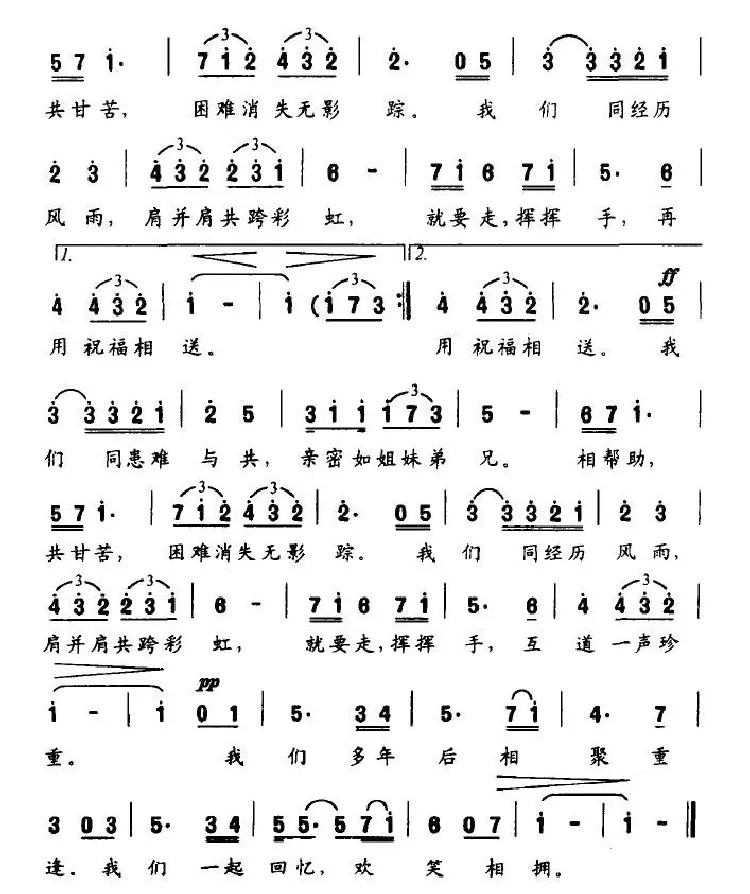 5 7 i· | 7 i 2 4 3 2 | 2· 0 5 | 3 3 3 2 i |
共甘苦, 困难消失无影 踪。 我 们 同经历
2 3 | 4 3 2 2 3 1 | 6 - | 7 i 6 7 i | 5· 6 |
风雨, 肩并肩共跨彩 虹, 就要走,挥挥 手, 再
1. 2.
ff
4 4 3 2 | i - | i (i 7 3 :| 4 4 3 2 | 2· 0 5 |
用祝福相 送。 用祝福相 送。 我
3 3 3 2 i | 2 5 | 3 i i i 7 3 | 5 - | 6 7 i· |
们 同患难 与共, 亲密如姐妹弟 兄。 相帮助,
5 7 i· | 7 i 2 4 3 2 | 2· 0 5 | 3 3 3 2 i | 2 3 |
共甘苦, 困难消失无影 踪。 我 们 同经历 风雨,
4 3 2 2 3 i | 6 - | 7 i 6 7 i | 5· 6 | 4 4 3 2 |
肩并肩共跨彩 虹, 就要走,挥挥 手, 互 道 一声珍
pp
i - | i 0 1 | 5· 3 4 | 5· 7 i | 4· 7 |
重。 我 们 多年 后 相 聚 重
3 0 3 | 5· 3 4 | 5 5· 5 7 i | 6 0 7 | i - | i - ‖
逢。我 们 一起 回忆, 欢 笑 相 拥。